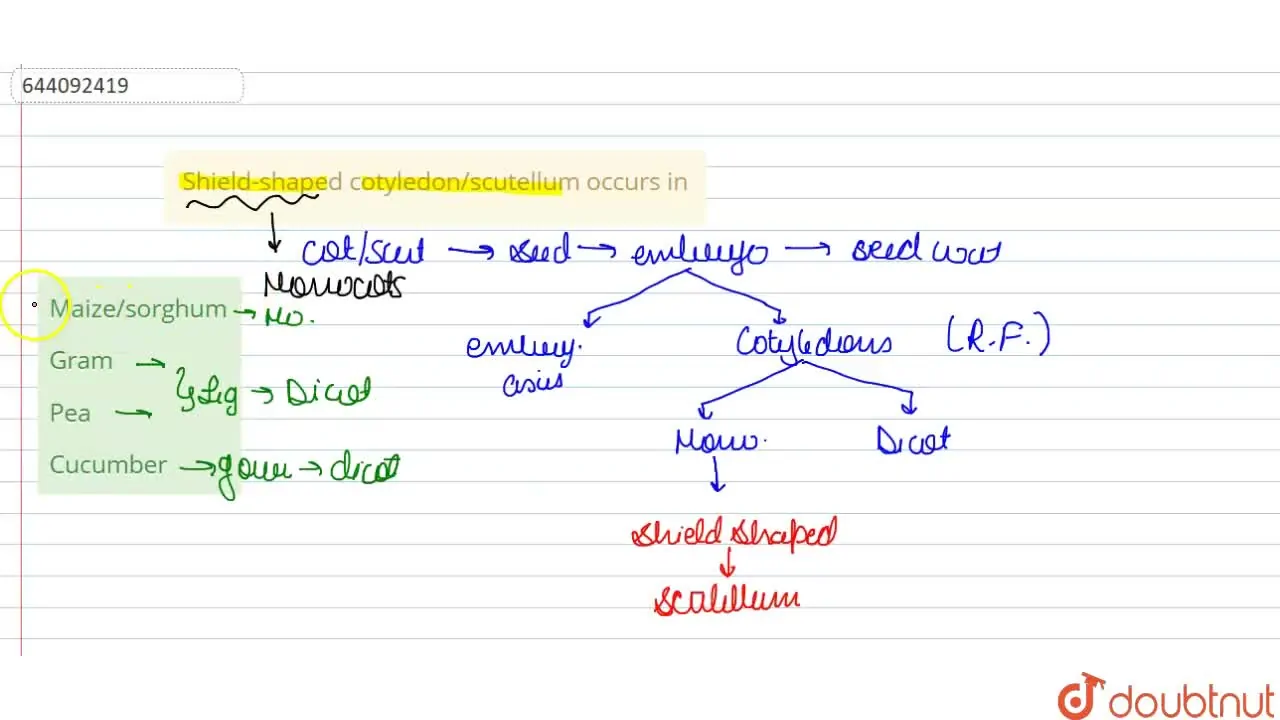 644092419
Shield-shaped cotyledon/scutellum occurs in
cot/scut → seed → embryo → seed coat
Monocots
Maize/sorghum → Mo.
Gram →
Pea →
} Leg → Dicot
Cucumber → gour → dicot
embry.
axis
Cotyledons (R.F.)
Mono.
Dicot
shield shaped
scutellum
doubtnut